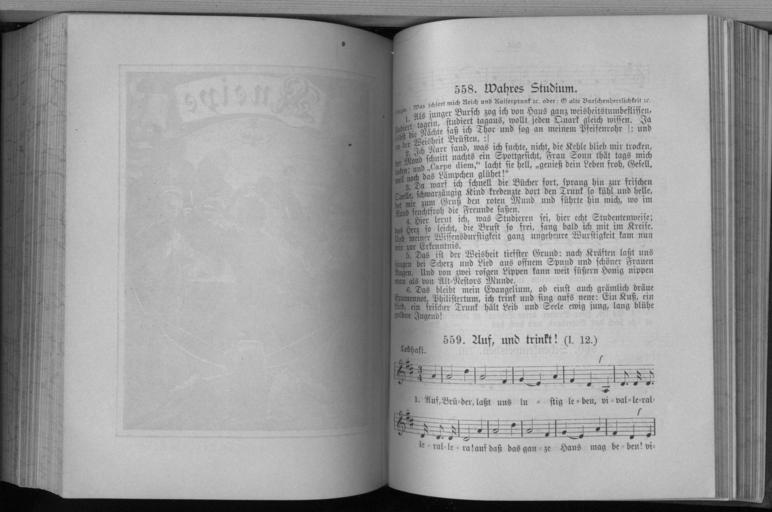 Kneipe
558. Wahres Studium.
Was schiert mich Reich und Kaiserprunk ꝛc. oder: O alte Burschenherrlichkeit ꝛc.
1. Als junger Bursch zog ich von Haus ganz weisheitstumbeflissen,
studiert' tagein, studiert tagaus, wollt jeden Quark gleich wissen. Ja
die Nächte saß ich Thor und sog an meinem Pfeifenrohr |: und
an der Weisheit Brüsten. :|
2. Ich Narr fand, was ich suchte, nicht, die Kehle blieb mir trocken,
der Mond schnitt nachts ein Spottgesicht, Frau Sonn thät tags mich
und „Carpe diem,“ lacht sie hell, „genieß dein Leben froh, Gesell,
weil noch das Lämpchen glühet!“
3. Da warf ich schnell die Bücher fort, sprang hin zur frischen
Quelle, schwarzäugig Kind kredenzte dort den Trunk so kühl und helle,
bot mir zum Gruß den roten Mund und führte hin mich, wo im
Rund feuchtfroh die Freunde saßen.
4. Hier lernt ich, was Studieren sei, hier echt Studentenweise;
das Herz so leicht, die Brust so frei, sang bald ich mit im Kreise.
Und meiner Wissensdurstigkeit ganz ungeheure Wurstigkeit kam nun
mir zur Erkenntnis.
5. Das ist der Weisheit tiefster Grund: nach Kräften laßt uns
saugen bei Scherz und Lied aus offnem Spund und schöner Frauen
Augen. Und von zwei rosgen Lippen kann weit süßern Honig nippen
man als von Alt-Nestors Munde.
6. Das bleibt mein Evangelium, ob einst auch grämlich dräue
Examensnot, Philistertum, ich trink und sing aufs neue: Ein Kuß, ein
Lied, ein frischer Trunk hält Leib und Seele ewig jung, lang blühe
goldne Jugend!
559. Auf, und trinkt! (I. 12.)
Lebhaft.
f
1. Auf, Brü-der, laßt uns lu - stig le-ben, vi-val-le-ral-
f
le-ral-le-ra! auf daß das gan-ze Haus mag be-ben! vi-